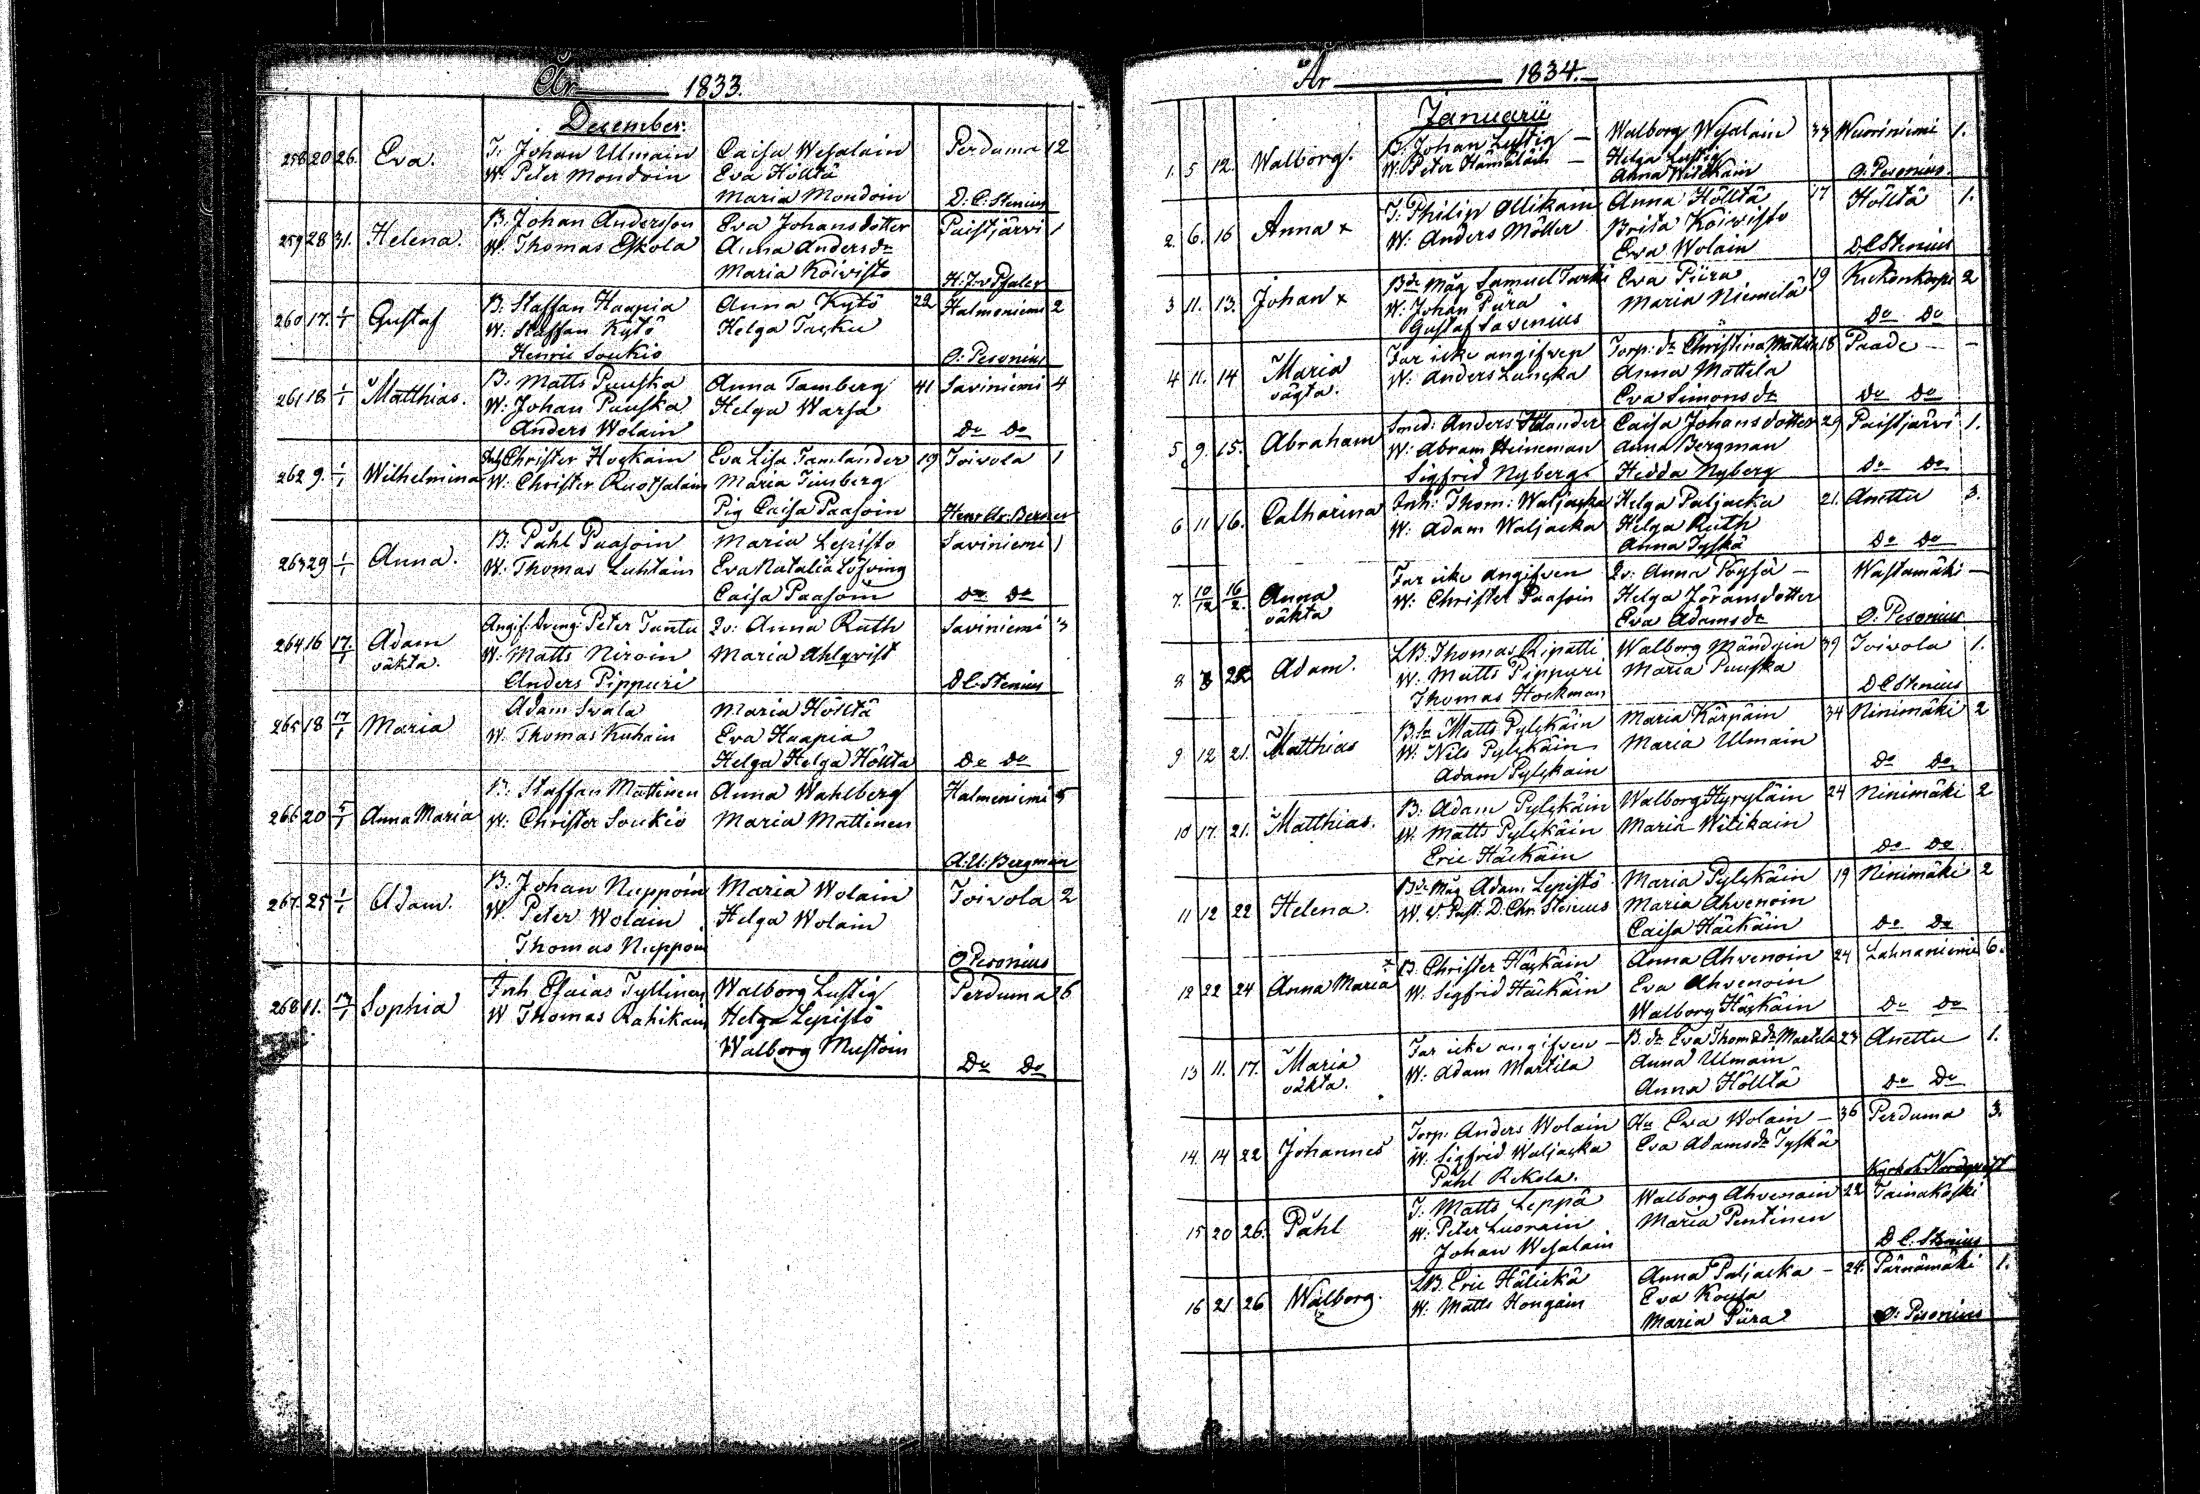 År 1833.
December.
258 20 26. Eva. T. Johan Ulmain Caisa Wesalain Perduma 2
W. Peter Mondoin Eva Hölltä
Maria Mondoin D. C. Stenius
259 28 31. Helena. B. Johan Andersson Eva Johansdotter Paistjärvi 1
W. Thomas Eskola Anna Andersdr
Maria Koivisto
260 17. 1/1 Gustaf B. Staffan Haapia Anna Kytö 22 Halmeniemi 2
W. Staffan Kytö Helga Tasku
Henric Soukio O. Pesonius
261 18 1/1 Matthias. B. Matts Puuska Anna Tamberg 41 Saviniemi 4
W. Johan Puuska Helga Warsa
Anders Wolain Do Do
262 9. 1/1 Wilhelmina Christer Hockain Eva Lisa Tamlander 19 Toivola 1
W. Christer Ruotsalain Maria Timberg
Pig Caisa Paasoin
263 29 1/1 Anna. B. Påhl Paasoin Maria Lepistö Saviniemi 1
W. Thomas Luhtain Eva Natalia Löfving
Caisa Paasoin Do Do
264 16 17/1 Adam Angif: Dreng: Peter Tuntu Qv: Anna Ruth Saviniemi 3
oäkta. W. Matts Niroin Maria Ahlqvist
Anders Pippuri D C. Stenius
265 18 17/1 Maria Adam Svala Maria Hölltä
W. Thomas Kuhain Eva Haapia
Helga Helga Hölltä Do Do
266 20 5/1 Anna Maria B. Staffan Mattinen Anna Wahlberg Halmeniemi 5
W. Christer Soukio Maria Mattinen
A. U. Bergman
267. 25 1/1 Adam. B. Johan Nuppoin Maria Wolain Toivola 2
W. Peter Wolain Helga Wolain
Thomas Nuppoin O Pesonius
268 11. 17/1 Sophia Inh Esaias Tyllinen Walborg Lustig Perduma 6
W Thomas Rahikain Helga Lepistö
Walborg Mustoin Do Do
År 1834.
Januarii
1. 5 12. Walborg. B. Johan Lustig Walborg Wesalain 33 Wuoriniemi 1.
W. Peter Hämäläin Helga Lustig
Anna Witikain O. Pesonius.
2. 6. 16 Anna x T. Philip Ollikain Anna Hölltä 17 Hölltä 1.
W: Anders Möller Brita Koivisto
Eva Wolain D C Stenius
3 11. 13. Johan x Bde Måg Samuel Turki Eva Piira 19 Kuckonkorpi 2
W. Johan Piira Maria Niemelä
Gustaf Savenius Do Do
4 11. 14 Maria Far icke angifven Torp. dr Christina Mattila 18 Paade
oägta. W: Anders Lanska Anna Mattila
Eva Simonsdr Do Do
5 9. 15. Abraham Smed: Anders Caisa Johansdotter 29 Paistjärvi 1.
W: Abram Heineman Anna Bergman
Sigfrid Nyberg Hedda Nyberg Do Do
6 11 16. Catharina Inh: Thom: Waljacka Helga Paljacka 21. Anettu 3.
W. Adam Waljacka Helga Ruth
Anna Tyskä Do Do
7. 10/12 16/2. Anna Far icke angifven Qv: Anna Pöysä Wastamäki
oäkta W: Christer Paasoin Helga Jöransdotter
Eva Adamsdr O. Pesonius
8 Adam. LB. Thomas Ripatti Walborg Mändyin 39 Toivola 1.
W. Matts Pippuri Maria Puuska
Thomas Hockman D C Stenius
9 12 21. Matthias Matts Pylckäin Maria Kärpäin 34 Ninimäki 2
W. Nils Pylckäin Maria Ulmain
Adam Pylckäin Do Do
10 17. 21. Matthias. B. Adam Pylckäin Walborg Hyryläin 24 Ninimäki 2
W. Matts Pylckäin Maria Witikain
Eric Häckäin Do Do
11 12 22 Helena. Bde Måg Adam Lepistö Maria Pylckäin 19 Ninimäki 2
W. V. Past. D. Chr. Stenius Maria Ahvenoin
Caisa Häckäin Do Do
12 22 24 Anna Maria B. Christer Häckäin Anna Ahvenoin 24 Lahnaniemi 6.
W. Sigfrid Häckäin Eva Ahvenoin
Walborg Häckäin Do Do
13 11. 17. Maria Far icke angifven B. dr Eva Thomsdr Martila 23 Anettu 1.
oäkta. W: Adam Martila Anna Ulmain
Anna Hölltä Do Do
14. 14 22 Johannes Torp. Anders Wolain Hu Eva Wolain 36 Perduma 3.
W. Sigfrid Waljacka Eva Adamsdr Tyskä
Påhl Rekola. Nordqvist
15 20 26. Påhl T. Matts Leppä Walborg Ahvenain 22 Tainakoski
W. Peter Luorain Maria Pentinen
Johan Wesalain D C. Stenius
16 21 26 Walborg. LB. Eric Hälickä Anna Paljacka 24. Pärnämäki 1.
W. Matts Hongain Eva Kousa
Maria Piira O: Pesonius